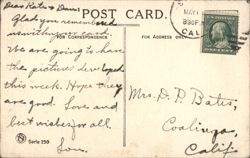 Dear Kates & Dans:
POST CARD.
Glad you remembered
FOR CORRESPONDENCE
FOR ADDRESS ONLY
We are going to have
the pictures developed
this week. Hope they
are good. Love and
best wishes for all
Mrs. D. P. Bates,
Coalinga,
Calif.
MAY
CAL
Serie 259